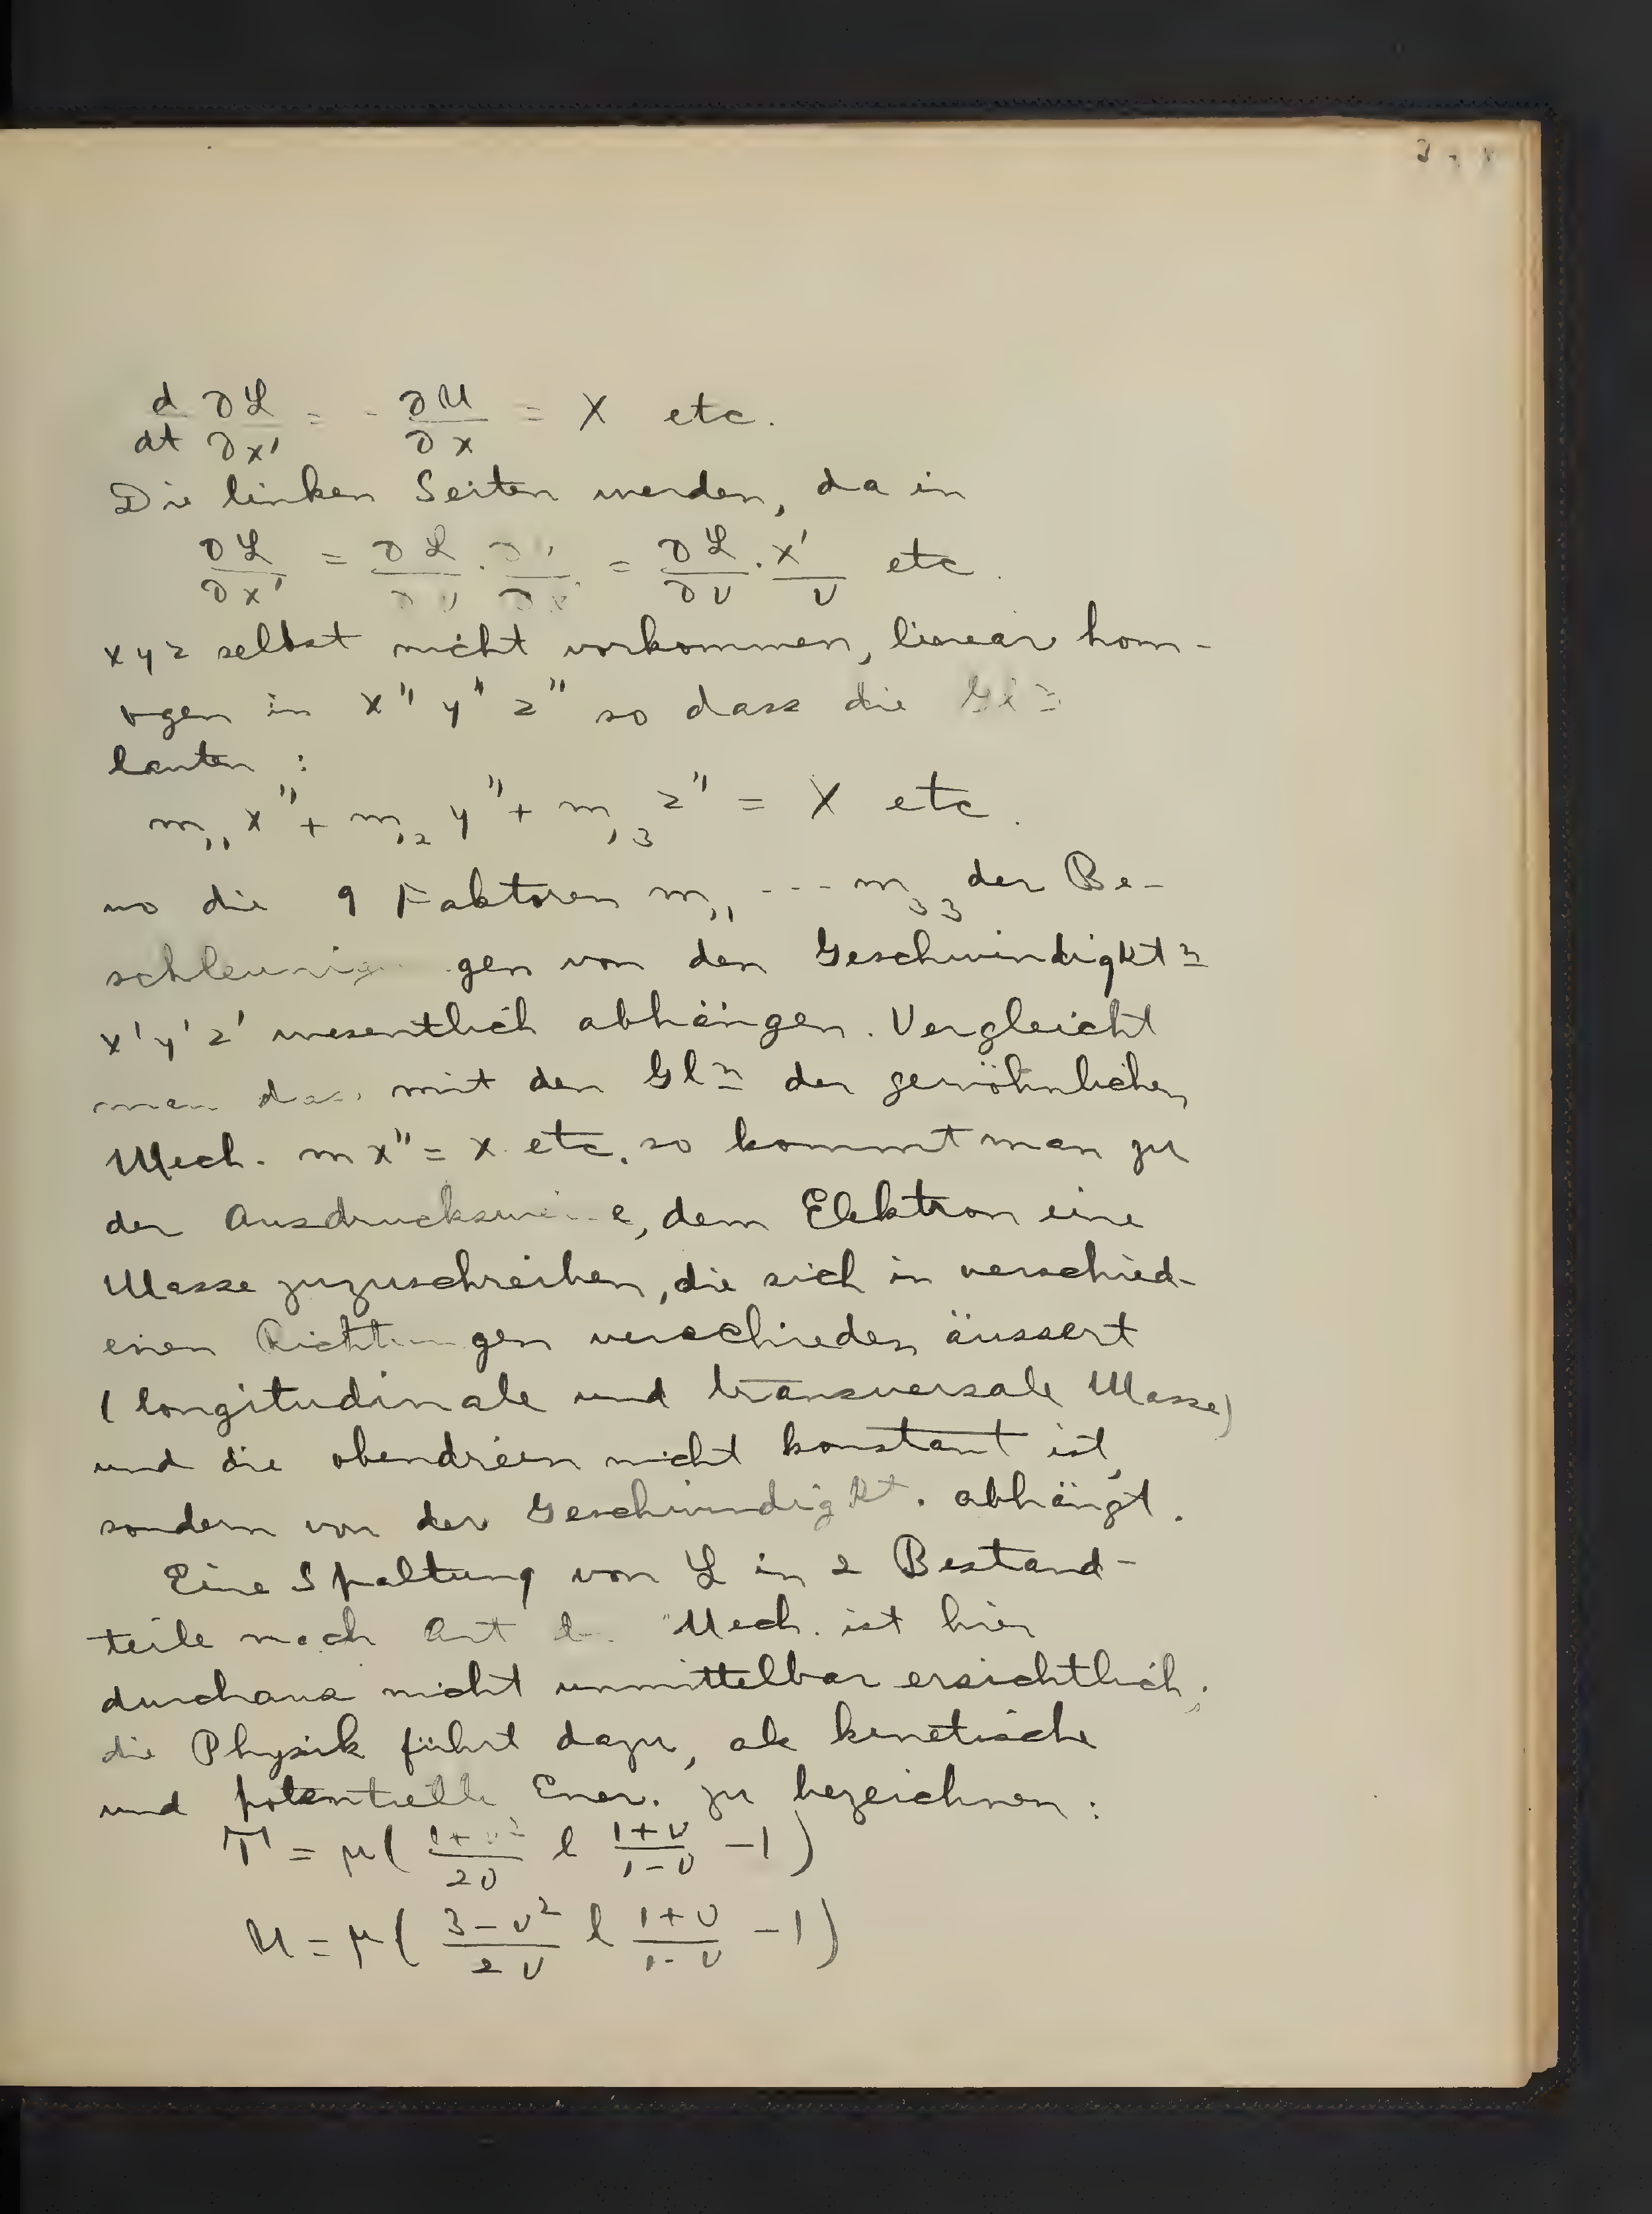 d/dt ∂L/∂x' = - ∂U/∂x = X etc.
Die linken Seiten werden, da in
∂L/∂x' = ∂L/∂v · ∂v/∂x' = ∂L/∂v · x'/v etc.
x y z selbst nicht vorkommen, linear hom-
ogen in x" y" z" so dass die Gl n
lauten :
m₁₁ x" + m₁₂ y" + m₁₃ z" = X etc.
wo die 9 Faktoren m₁₁ --- m₃₃ der Be-
schleunigungen von den Geschwindigkt n
x' y' z' wesentlich abhängen. Vergleicht
man das mit den Gl n der gewöhnlichen
Mech. m x" = X etc. so kommt man zu
der Ausdrucksweise, dem Elektron eine
Masse zuzuschreiben, die sich in verschied-
enen Richtungen verschieden äussert
( longitudinale und transversale Masse)
und die obendrein nicht konstant ist,
sondern von der Geschwindigkt. abhängt.
Eine Spaltung von L in 2 Bestand-
teile nach Art d. Mech. ist hier
durchaus nicht unmittelbar ersichtlich;
die Physik führt dazu, als kinetische
und potentielle Ener. zu bezeichnen:
T = μ( (1+v²)/2v l (1+v)/(1-v) -1)
U = μ( (3-v²)/2v l (1+v)/(1-v) -1)